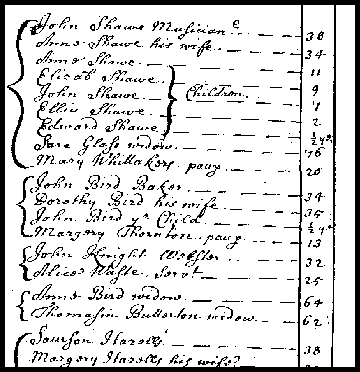 John Shawe Musician 38
Anne Shawe his wife 34
Anne Shawe 11
Elizab Shawe 9
John Shawe Children 1
Ellis Shawe 2
Edward Shawe ½ yr
Sara Glass widow 76
Mary Whittakers paup 20
John Bird Baker 34
Dorothy Bird his wife 35
John Bird yr Child ½ yr
Margery Thornton paup 13
John Knight Webster 32
Alice Waste Servt 25
Anne Bird widow 64
Thomasin Butterton widow 62
Sampson 38
Margery his wife